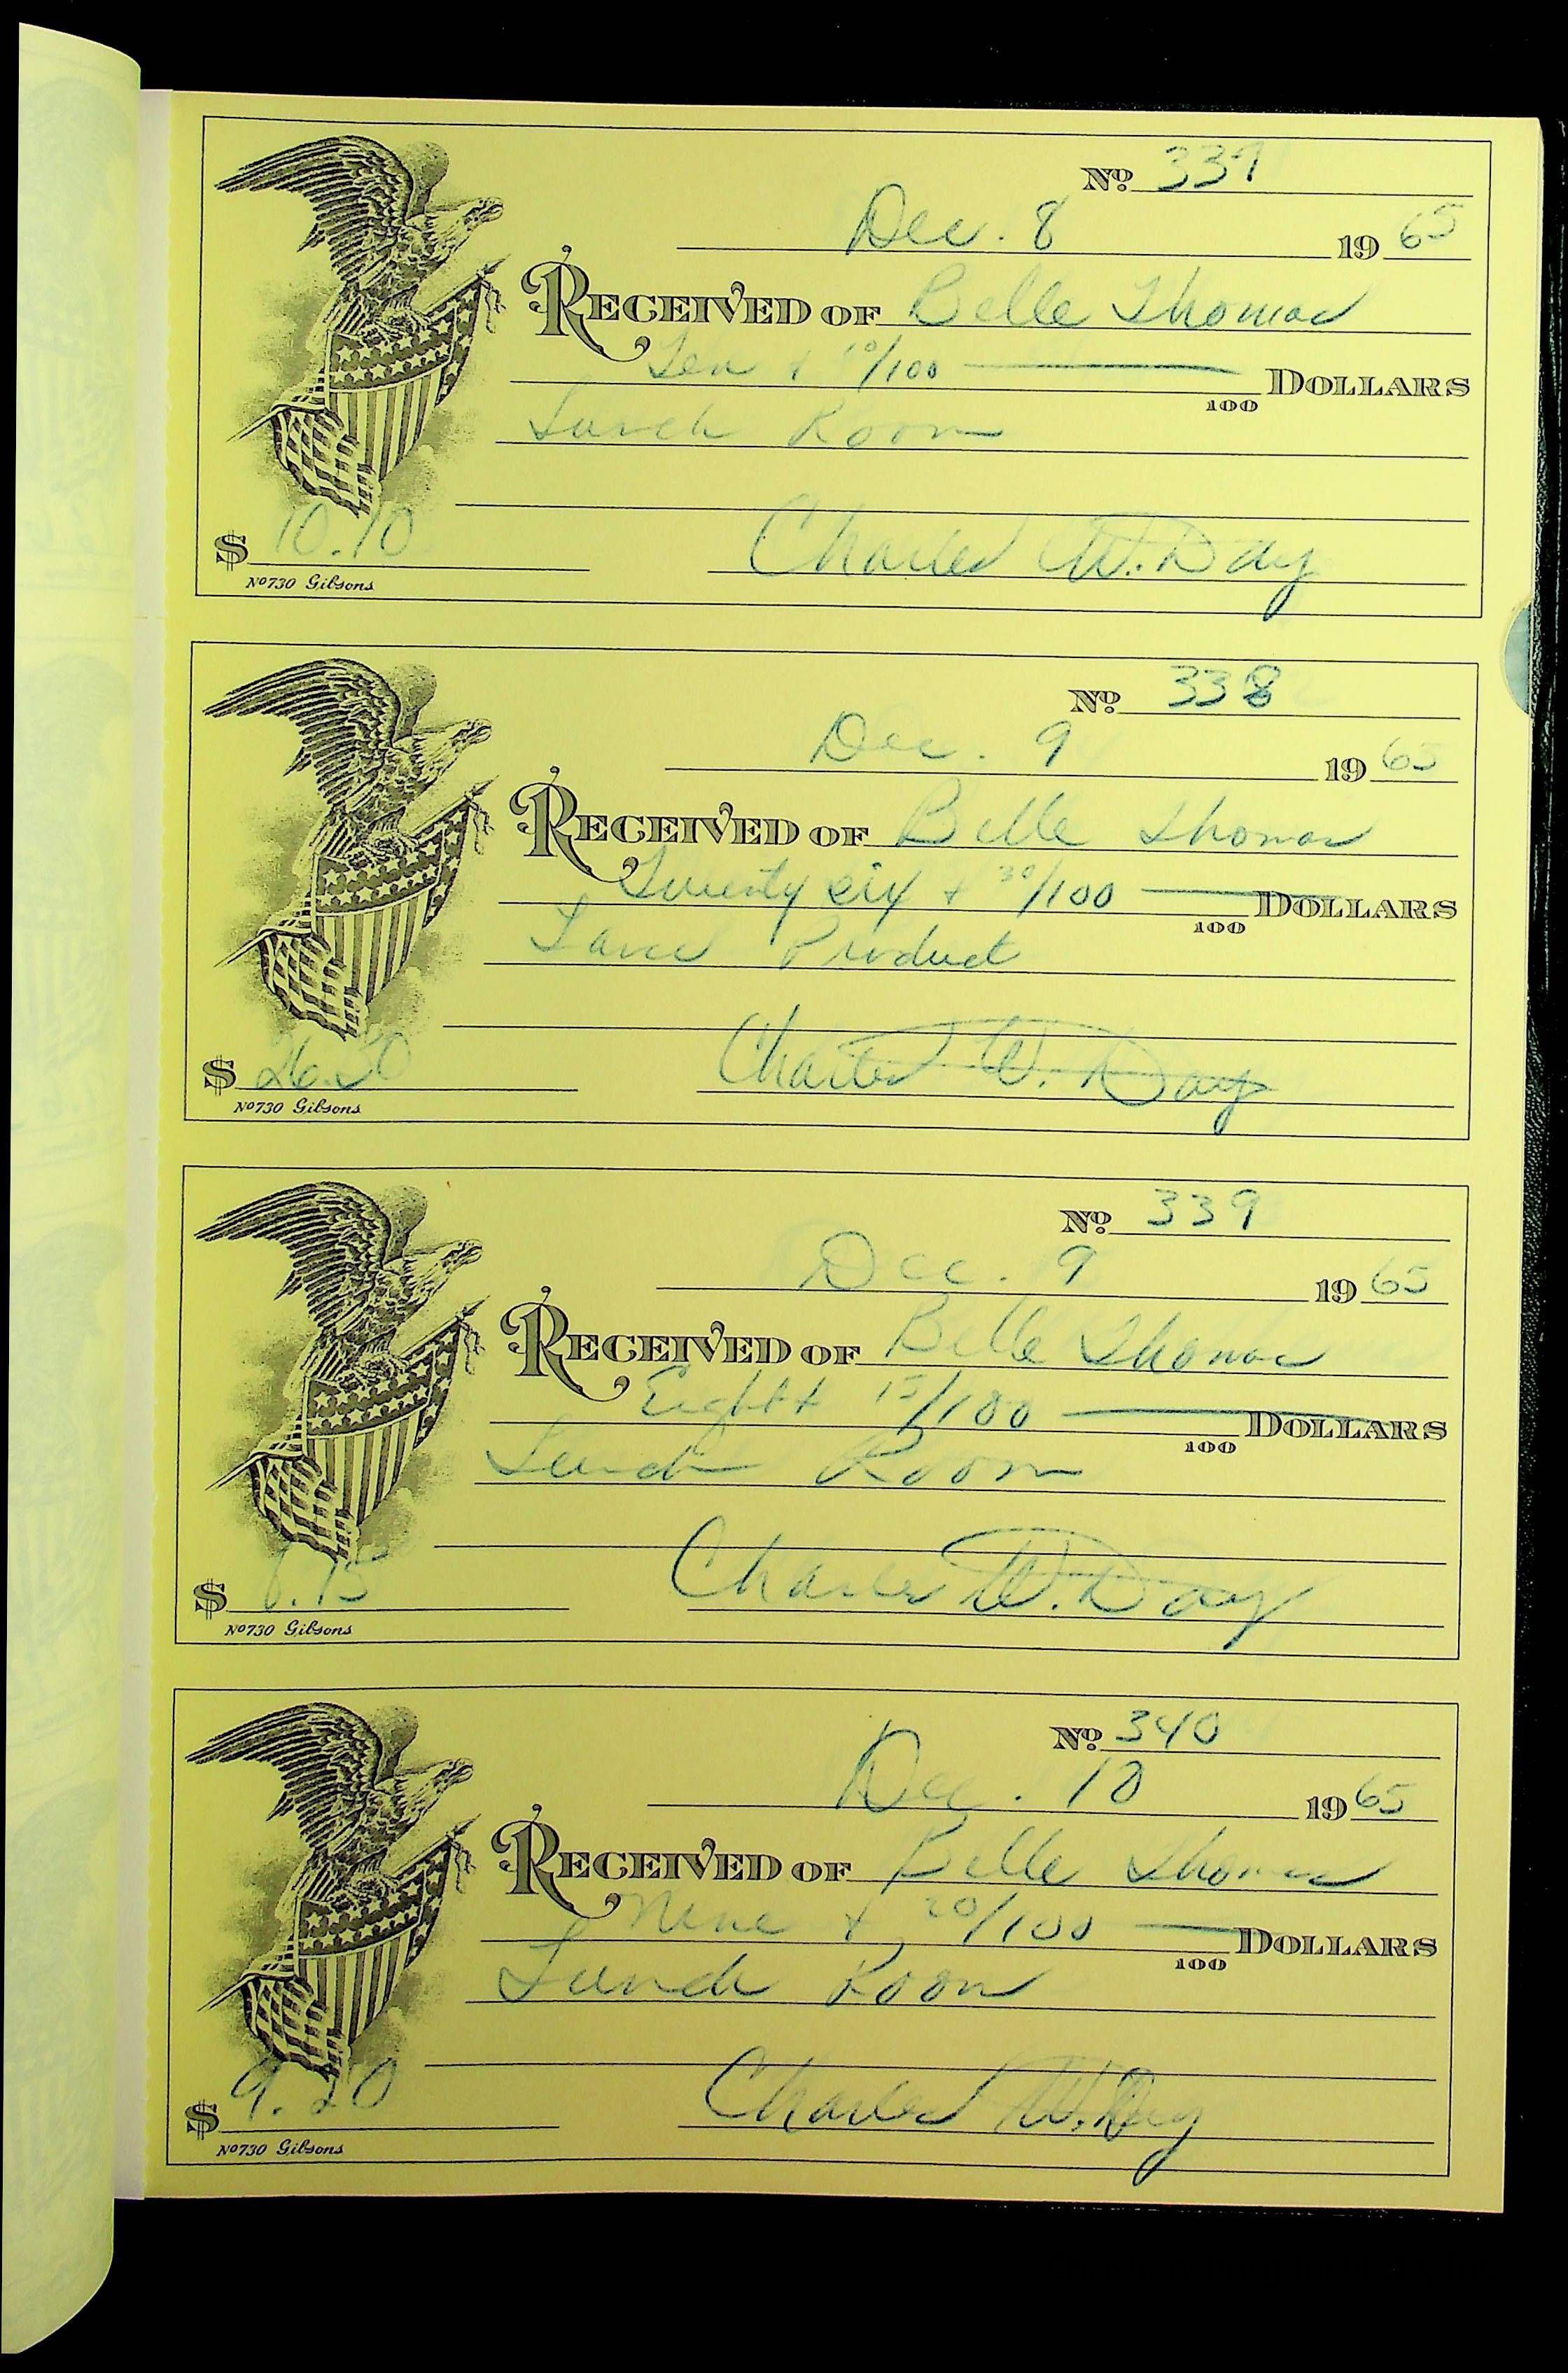 Nº 337
Dec. 8 19 65
RECEIVED OF Belle Thomas
Ten + 10/100 DOLLARS
100
Lunch Room
$ 10.10 Charles W. Day
Nº 730 Gibsons
Nº 338
Dec. 9 19 65
RECEIVED OF Belle Thomas
Twenty six + 30/100 DOLLARS
100
Lance Product
$ 26.30 Charles W. Day
Nº 730 Gibsons
Nº 339
Dec. 9 19 65
RECEIVED OF Belle Thomas
Eight + 15/100 DOLLARS
100
Lunch Room
$ 8.15 Charles W. Day
Nº 730 Gibsons
Nº 340
Dec. 10 19 65
RECEIVED OF Belle Thomas
Nine + 20/100 DOLLARS
100
Lunch Room
$ 9.20 Charles W. Day
Nº 730 Gibsons